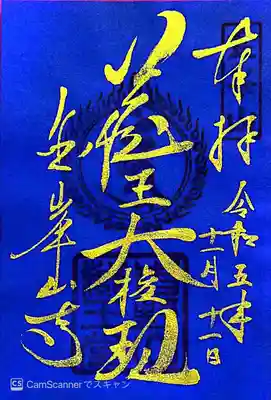 奉拝
令和五年
十一月十一日
蔵王大権現
金峯山寺
CS CamScannerでスキャン